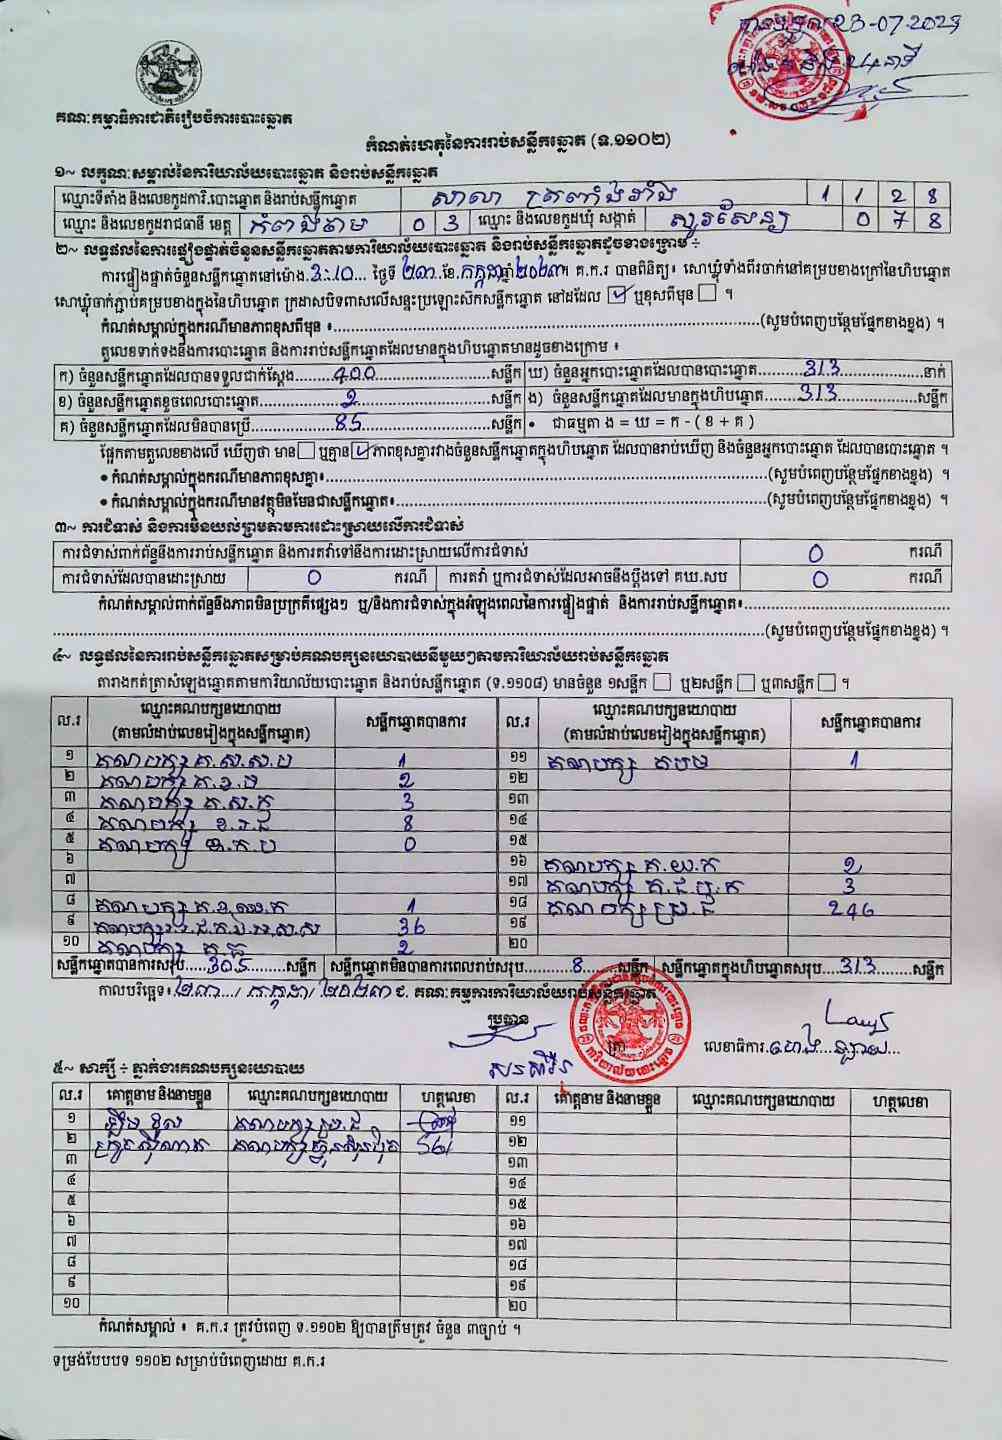 23-07-2023
គណៈកម្មាធិការជាតិរៀបចំការបោះឆ្នោត
កំណត់ហេតុនៃការរាប់សន្លឹកឆ្នោត (ទ.១១០២)
១~ លក្ខណៈសម្គាល់នៃការិយាល័យបោះឆ្នោត និងរាប់សន្លឹកឆ្នោត
ឈ្មោះទីតាំង និងលេខកូដការិ.បោះឆ្នោត និងរាប់សន្លឹកឆ្នោត សាលា 1 1 2 8
ឈ្មោះ និងលេខកូដរាជធានី ខេត្ត កំពង់ចាម 0 3 ឈ្មោះ និងលេខកូដឃុំ សង្កាត់ សួរសែន្យ 0 7 8
២~ លទ្ធផលនៃការផ្ទៀងផ្ទាត់ចំនួនសន្លឹកឆ្នោតតាមការិយាល័យបោះឆ្នោត និងរាប់សន្លឹកឆ្នោតដូចខាងក្រោម ÷
ការផ្ទៀងផ្ទាត់ចំនួនសន្លឹកឆ្នោតនៅម៉ោង 3:10 ថ្ងៃទី ២៣ ខែ កក្កដា ឆ្នាំ ២០២៣ គ.ក.រ បានពិនិត្យ៖ សោឃ្លុំទាំងពីរចាក់នៅគម្របខាងក្រៅនៃហិបឆ្នោត
សោឃ្លុំចាក់ភ្ជាប់គម្របខាងក្នុងនៃហិបឆ្នោត ក្រដាសបិទពាសលើសន្ទះប្រឡោះស៊កសន្លឹកឆ្នោត នៅដដែល ☑ ឬខុសពីមុន ☐ ។
កំណត់សម្គាល់ក្នុងករណីមានភាពខុសពីមុន ៖..........(សូមបំពេញបន្ថែមផ្នែកខាងខ្នង) ។
តួលេខទាក់ទងនឹងការបោះឆ្នោត និងការរាប់សន្លឹកឆ្នោតដែលមានក្នុងហិបឆ្នោតមានដូចខាងក្រោម ៖
ក) ចំនួនសន្លឹកឆ្នោតដែលបានទទួលជាក់ស្តែង 400 សន្លឹក ឃ) ចំនួនអ្នកបោះឆ្នោតដែលបានបោះឆ្នោត 313 នាក់
ខ) ចំនួនសន្លឹកឆ្នោតខូចពេលបោះឆ្នោត 2 សន្លឹក ង) ចំនួនសន្លឹកឆ្នោតដែលមានក្នុងហិបឆ្នោត 313 សន្លឹក
គ) ចំនួនសន្លឹកឆ្នោតដែលមិនបានប្រើ 85 សន្លឹក • ជាធម្មតា ង = ឃ = ក - ( ខ + គ )
ផ្អែកតាមតួលេខខាងលើ ឃើញថា មាន ☐ ឬគ្មាន ☑ ភាពខុសគ្នារវាងចំនួនសន្លឹកឆ្នោតក្នុងហិបឆ្នោត ដែលបានរាប់ឃើញ និងចំនួនអ្នកបោះឆ្នោត ដែលបានបោះឆ្នោត ។
• កំណត់សម្គាល់ក្នុងករណីមានភាពខុសគ្នា៖..........(សូមបំពេញបន្ថែមផ្នែកខាងខ្នង) ។
• កំណត់សម្គាល់ក្នុងករណីមានវត្ថុមិនមែនជាសន្លឹកឆ្នោត៖..........(សូមបំពេញបន្ថែមផ្នែកខាងខ្នង) ។
៣~ ការជំទាស់ និងការមិនយល់ព្រមតាមការដោះស្រាយលើការជំទាស់
ការជំទាស់ពាក់ព័ន្ធនឹងការរាប់សន្លឹកឆ្នោត និងការតវ៉ាទៅនឹងការដោះស្រាយលើការជំទាស់ 0 ករណី
ការជំទាស់ដែលបានដោះស្រាយ 0 ករណី ការតវ៉ា ឬការជំទាស់ដែលអាចនឹងប្តឹងទៅ គឃ.សប 0 ករណី
កំណត់សម្គាល់ពាក់ព័ន្ធនឹងភាពមិនប្រក្រតីផ្សេងៗ ឬ/និងការជំទាស់ក្នុងអំឡុងពេលនៃការផ្ទៀងផ្ទាត់ និងការរាប់សន្លឹកឆ្នោត៖..........
..........(សូមបំពេញបន្ថែមផ្នែកខាងខ្នង) ។
៤~ លទ្ធផលនៃការរាប់សន្លឹកឆ្នោតសម្រាប់គណបក្សនយោបាយនីមួយៗតាមការិយាល័យរាប់សន្លឹកឆ្នោត
តារាងកត់ត្រាសំឡេងឆ្នោតតាមការិយាល័យបោះឆ្នោត និងរាប់សន្លឹកឆ្នោត (ទ.១១០៨) មានចំនួន ១សន្លឹក ☐ ឬ២សន្លឹក ☐ ឬ៣សន្លឹក ☐ ។
ល.រ ឈ្មោះគណបក្សនយោបាយ (តាមលំដាប់លេខរៀងក្នុងសន្លឹកឆ្នោត) សន្លឹកឆ្នោតបានការ ល.រ ឈ្មោះគណបក្សនយោបាយ (តាមលំដាប់លេខរៀងក្នុងសន្លឹកឆ្នោត) សន្លឹកឆ្នោតបានការ
១ គណបក្ស គ.ស.ស.ប 1 ១១ គណបក្ស 1
២ គណបក្ស 2 ១២
៣ គណបក្ស 3 ១៣
៤ គណបក្ស 8 ១៤
៥ គណបក្ស 0 ១៥
៦ ១៦ គណបក្ស គ.យ.ក 2
៧ ១៧ គណបក្ស 3
៨ គណបក្ស 1 ១៨ គណបក្ស ប្រ.ជ 246
៩ គណបក្ស 36 ១៩
១០ គណបក្ស 2 ២០
សន្លឹកឆ្នោតបានការសរុប 305 សន្លឹក សន្លឹកឆ្នោតមិនបានការពេលរាប់សរុប 8 សន្លឹក សន្លឹកឆ្នោតក្នុងហិបឆ្នោតសរុប 313 សន្លឹក
កាលបរិច្ឆេទ៖ ២៣ / កក្កដា / ២០២៣ ជ. គណៈកម្មការការិយាល័យរាប់សន្លឹកឆ្នោត
ប្រធាន ត្រា លេខាធិការ
៥~ សាក្សី ÷ ភ្នាក់ងារគណបក្សនយោបាយ
ល.រ គោត្តនាម និងនាមខ្លួន ឈ្មោះគណបក្សនយោបាយ ហត្ថលេខា ល.រ គោត្តនាម និងនាមខ្លួន ឈ្មោះគណបក្សនយោបាយ ហត្ថលេខា
១ គណបក្ស ១១
២ គណបក្ស ១២
៣ ១៣
៤ ១៤
៥ ១៥
៦ ១៦
៧ ១៧
៨ ១៨
៩ ១៩
១០ ២០
កំណត់សម្គាល់ ៖ គ.ក.រ ត្រូវបំពេញ ទ.១១០២ ឱ្យបានត្រឹមត្រូវ ចំនួន ៣ច្បាប់ ។
ទម្រង់បែបបទ ១១០២ សម្រាប់បំពេញដោយ គ.ក.រ